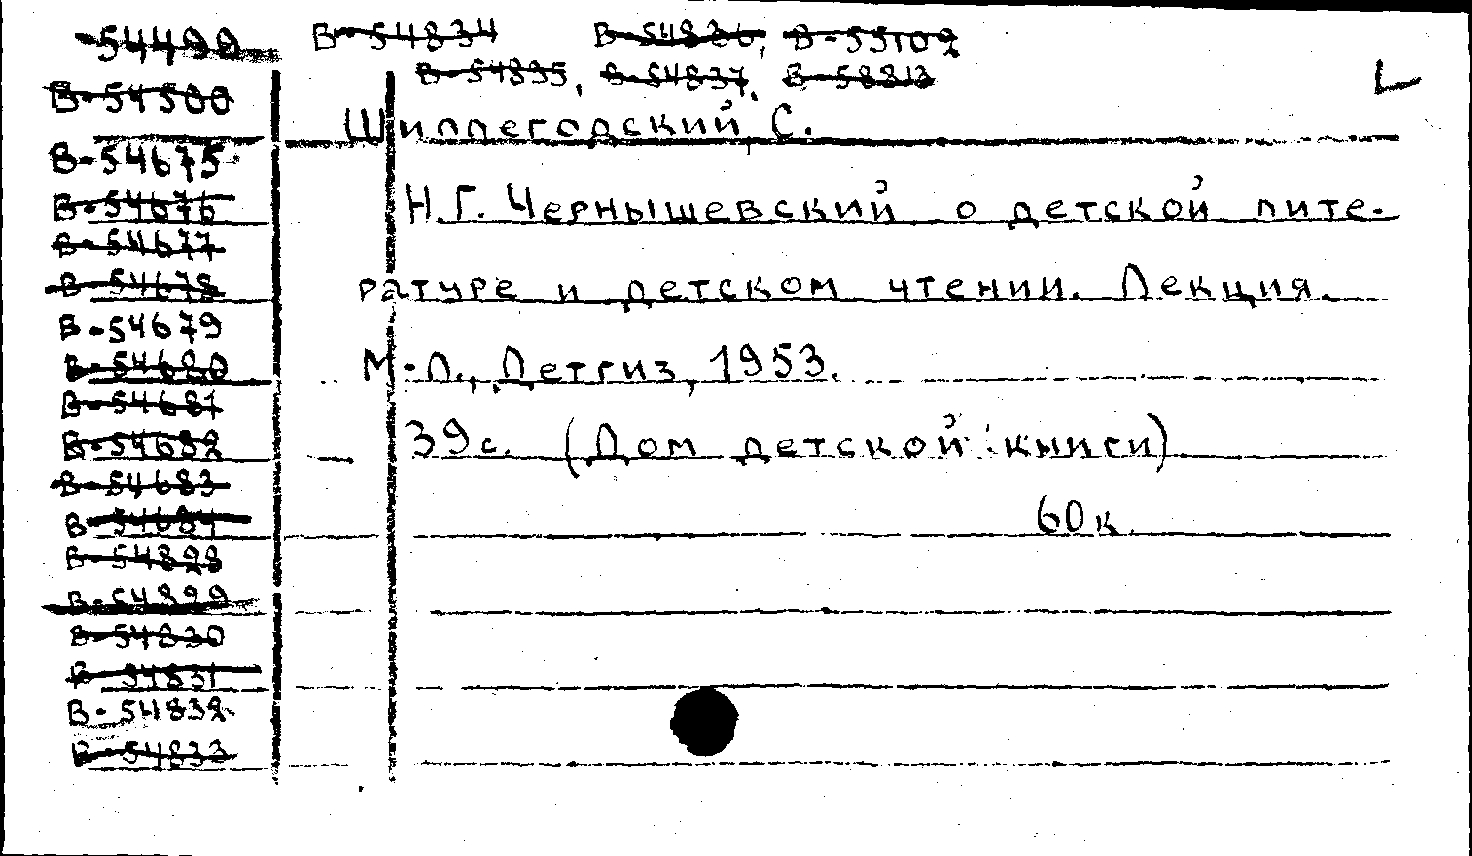 54499 В-54834 В-54836, В-55109
В-54835, В-54837, В-58813
В-54500
Шиллегодский С.
В-54675
В-54676
Н.Г. Чернышевский о детской лите-
В-54677
В-54678
ратуре и детском чтении. Лекция.
В-54679
В-54680
М.-Л., Детгиз, 1953.
В-54681
В-54682
39с. (Дом детской книги)
В-54683
В-54684
60к.
В-54828
В-54829
В-54830
В-54831
В-54832
В-54833